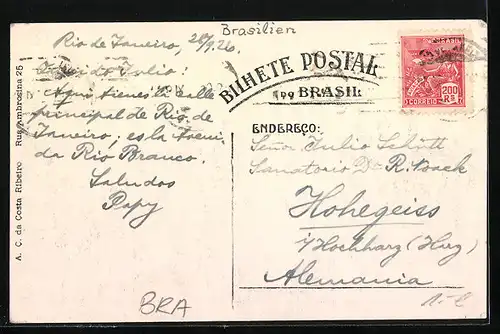 Brasilien
Rio de Janeiro, 28/9.26.
Querido Julio!
Aqui tienes la calle
principal de Rio de
Janeiro; es la Aveni-
da Rio Branco.
Saludos
Papy
BILHETE POSTAL
DO BRASIL
BRASIL
200
RÉIS
CORREIO
ENDEREÇO:
Señor Julio Schütt
Sanatorio Dr R. Noack
Hohegeiss
i/Hochharz (Harz)
Alemania
A. C. da Costa Ribeiro Rua Ambrozina 25
BRA